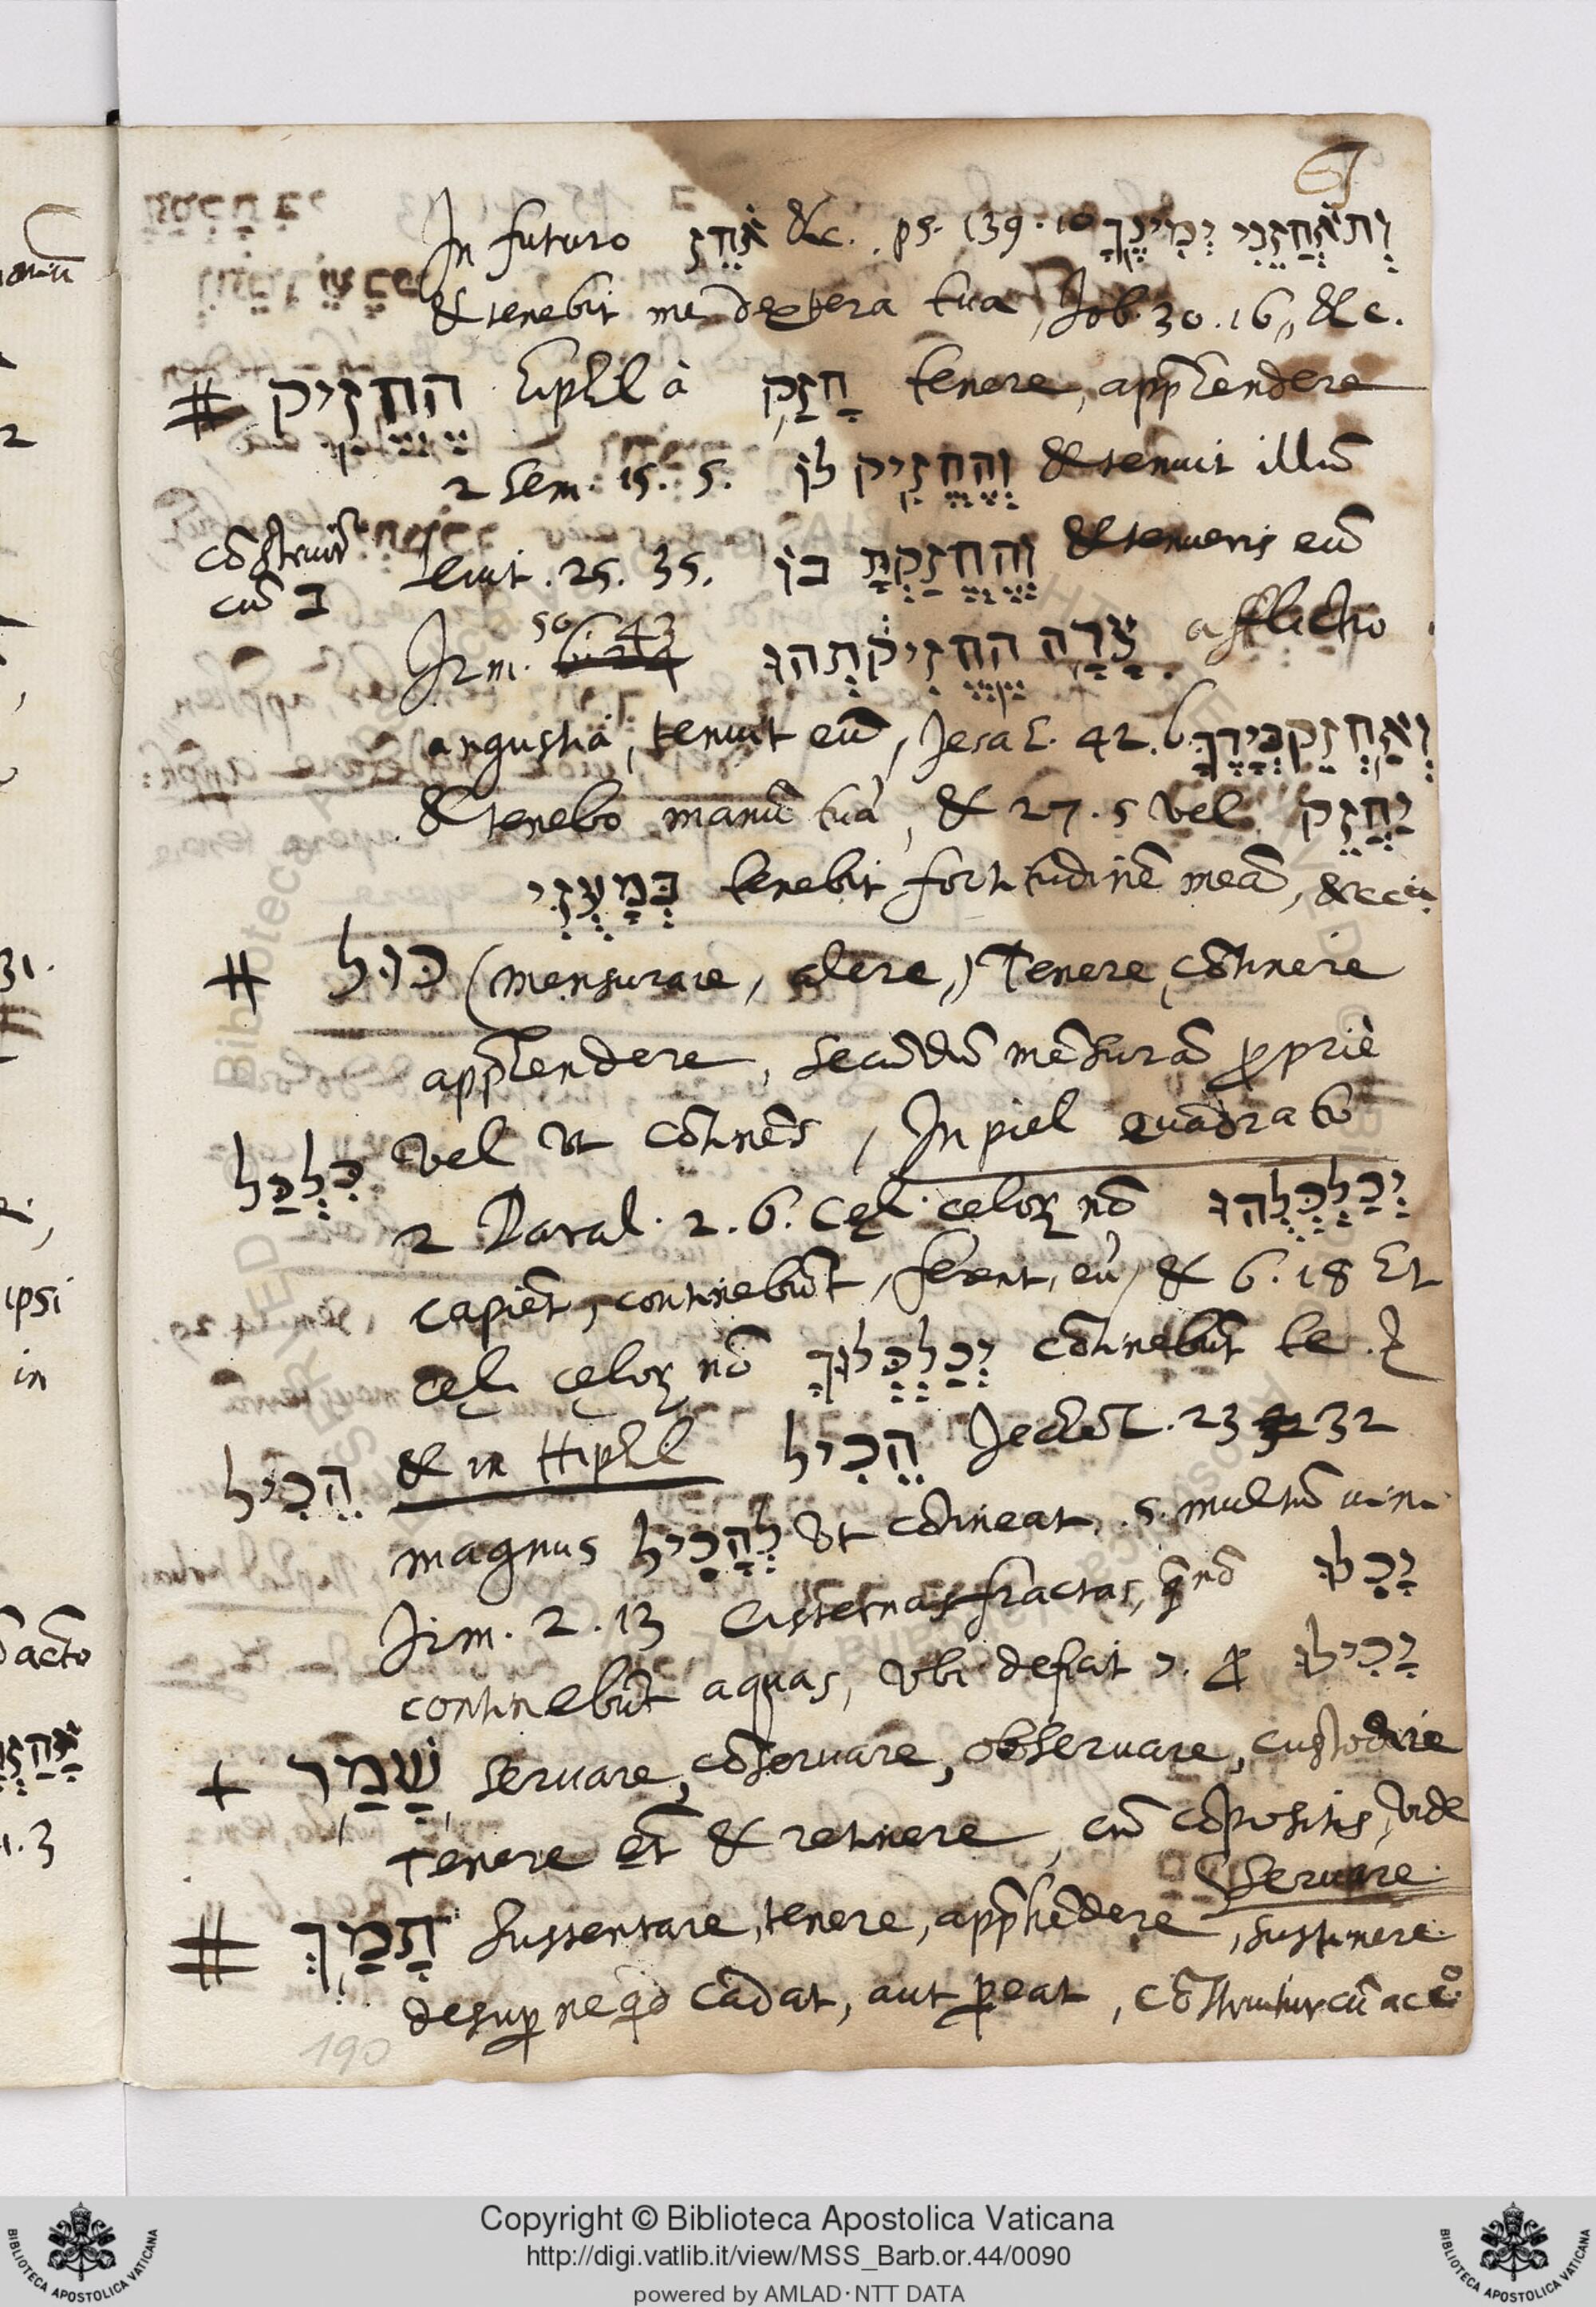 In futuro אֹחֵז &c. ps. 139.10 וְתֹאחֲזֵנִי יְמִינֶךָ
& tenebit me dextera tua, Job. 30.16, &c.
# הֶחֱזִיק Hiphil à חָזַק tenere, apprhendere
2 Sem. 15. 5. וְהֶחֱזִיק לוֹ & tenuit illū
cōstruitr
cū ב
Leuit. 25. 35. וְהֶחֱזַקְתָּ בּוֹ & tenueris eū
Irm. 50 43 צָרָה הֶחֱזִיקַתְהוּ afflictio
angustia, tenuit eū, Jesai. 42.6 וְאַחְזֵק בְּיָדֶךָ
& tenebo manū tuā, & 27.5 vel יַחֲזֵק
בְּמָעֻזִּי tenebit fortitudinē meā,
# כּוּל (mensurare, alere,) Tenere, cōtinere
apprhendere, secūdū mēsurā propriè
כִּלְכֵּל vel ut cōtinēs, In piel quadrato
2 Paral. 2. 6. cęli cęlorum nō יְכַלְכְּלֻהוּ
capiēt, continebūt, ferent, eū, & 6. 18 Et
cęli cęlorum nō יְכַלְכְּלוּךָ cōtinebūt te.
הֵכִיל & in Hiphil הֵכִיל Jechez. 23 32
magnus לְהָכִיל ut cōtineat, .s. multū uini
Irm. 2. 13 Cisternas fractas, quę nō יָכִלוּ
continebūt aquas, ubi deficit י. pro יָכִילוּ
+ שָׁמַר seruare, cōseruare, obseruare, custodire
Tenere et & retinere, cū cōpositis, vide
Seruare.
# תָּמַךְ Sustentare, tenere, apprhēdere, sustinere
desuper ne qd cadat, aut pereat, cōstruitur cū acco
190
Copyright © Biblioteca Apostolica Vaticana
http://digi.vatlib.it/view/MSS_Barb.or.44/0090
powered by AMLAD·NTT DATA
BIBLIOTECA APOSTOLICA VATICANA
BIBLIOTECA APOSTOLICA VATICANA